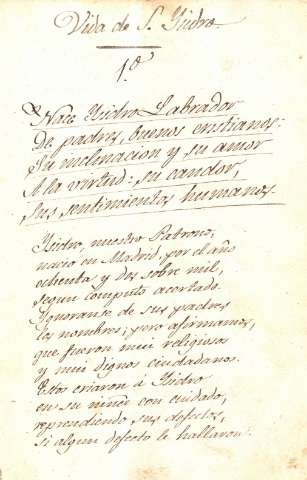 Vida de S. Ysidro.
1.º
Nace Ysidro Labrador
De padres, buenos cristianos:
Su inclinacion y su amor
A la virtud: su candor,
Sus sentimientos humanos.
Ysidro, nuestro Patrono,
nació en Madrid, por el año
ochenta y dos sobre mil,
segun computo acertado.
Ignoranse de sus padres
los nombres; pero afirmamos,
que fueron mui religiosos
y mui dignos ciudadanos.
Estos criaron á Ysidro
en su niñez con cuidado,
reprendiendo sus defectos,
si algun defecto le hallaron.